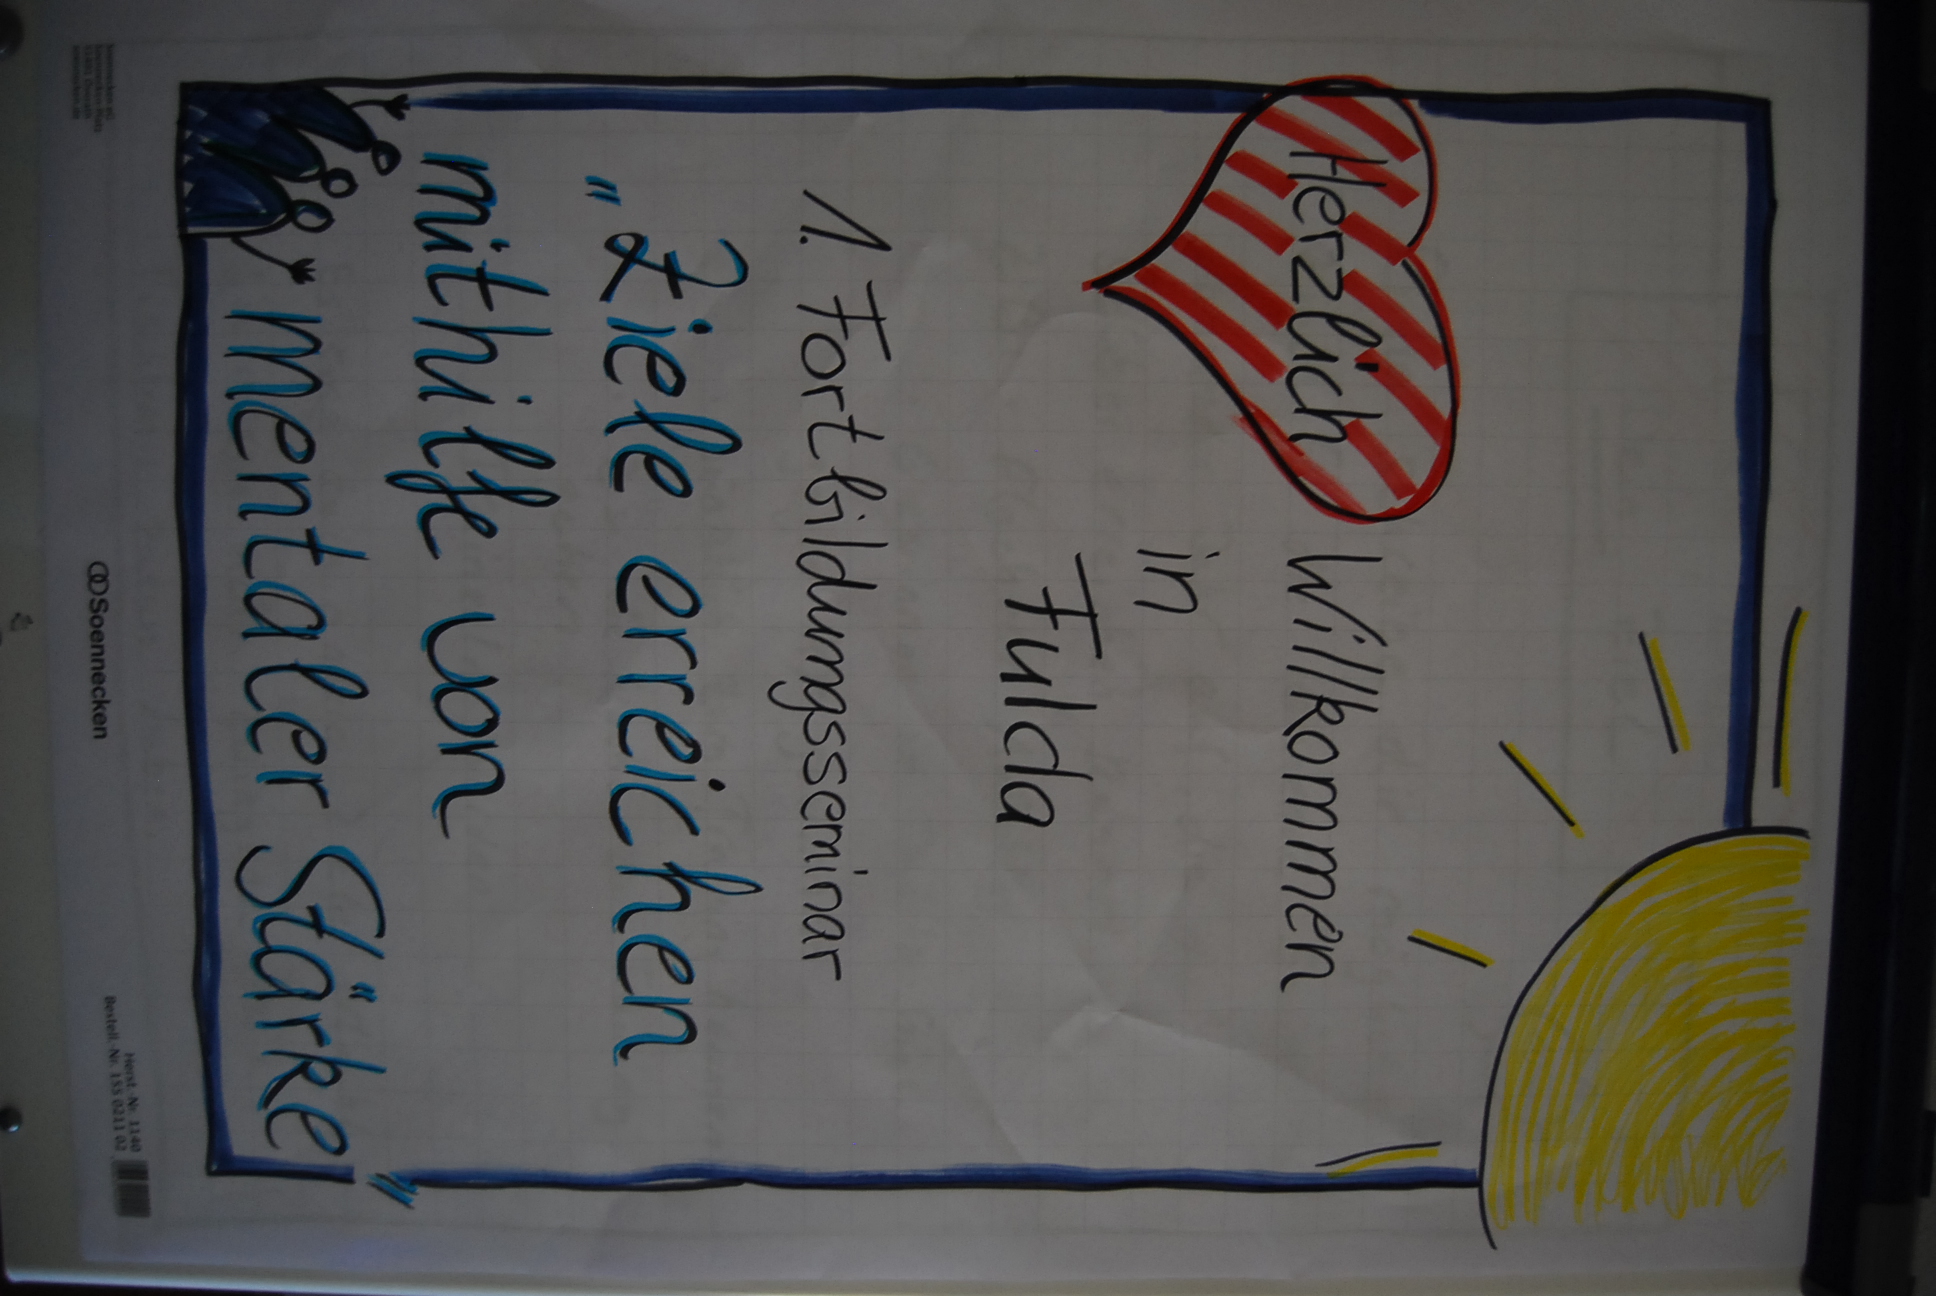 Herzlich Willkommen
in
Fulda
1. Fortbildungsseminar
„Ziele erreichen
mithilfe von
mentaler Stärke"
Soennecken
Herst.-Nr. 1140
Bestell.-Nr. 155 0211 02